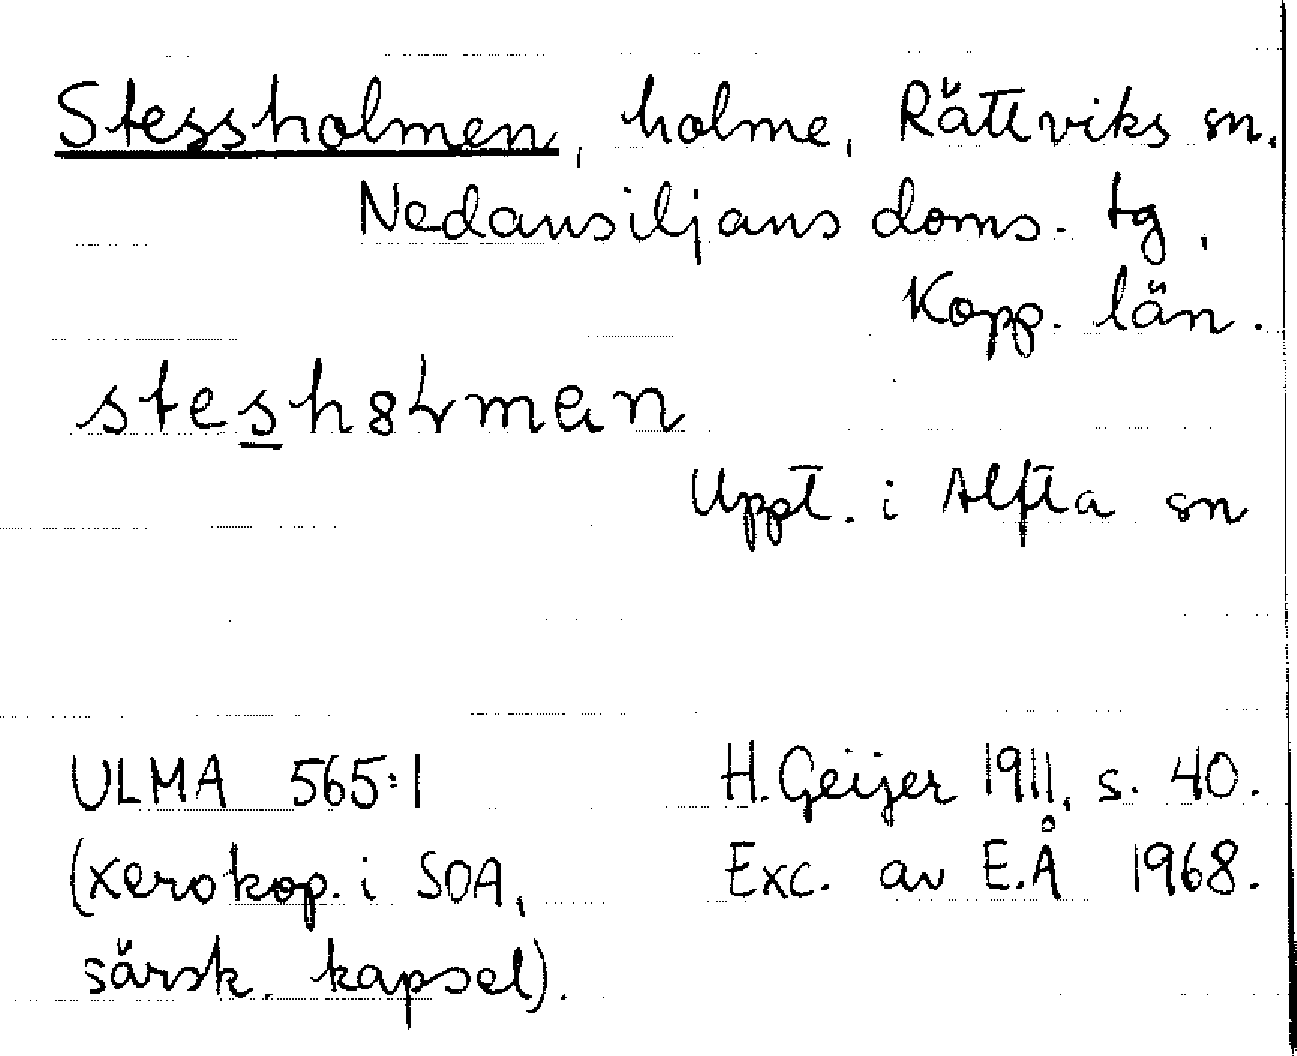 Stessholmen, holme, Rättviks sn.
Nedansiljans doms. tg,
Kopp. län.
Uppt. i Alfta sn
ULMA 565:1
H. Geijer 1911, s. 40.
(xerokop. i SOA,
Exc. av E.Å 1968.
särsk. kapsel).